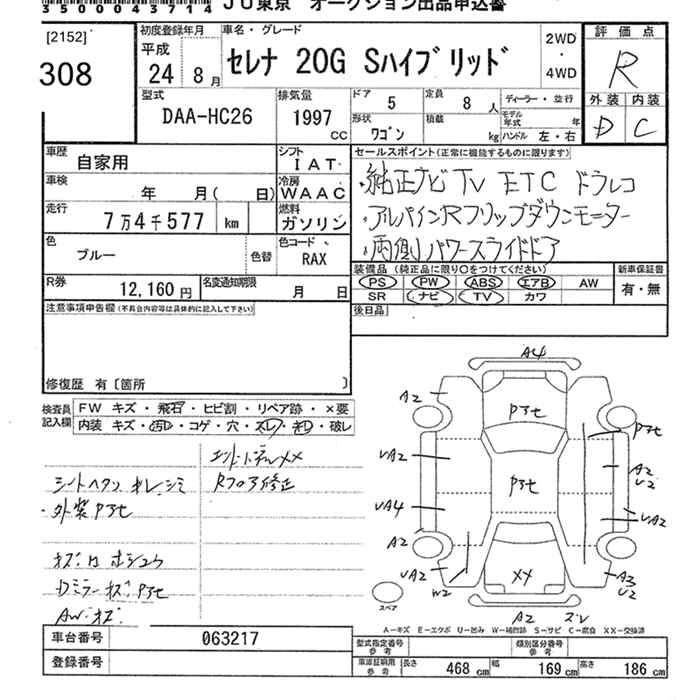 350004 3714 JU東京 オークション出品申込書
[2152]
308
初度登録年月
平成
24 年 8 月
車名・グレード
セレナ 20G Sハイブリッド
2WD
・
4WD
評価点
R
外装 内装
D C
型式
DAA-HC26
排気量
1997
CC
ドア 5
形状 ワゴン
定員 8 人
積載 kg
ディーラー・並行
モデル年式 年
ハンドル 左・右
車歴 自家用
シフト IAT
セールスポイント(正常に機能するものに限ります)
車検 年 月( 日)
冷房 WAAC
・純正ナビ TV ETC ドラレコ
走行 7万4千577 km
燃料 ガソリン
・アルパインRフリップダウンモーター
色 ブルー 色替
色コード RAX
・両側パワースライドドア
R券 12,160 円
名変通知期限 月 日
装備品(純正品に限り○をつけてください)
新車保証書
PS PW ABS エアB AW
有・無
SR ナビ TV カワ
後日品
注意事項申告欄(不具合内容等は具体的に記入して下さい)
修復歴 有〔箇所 〕
検査員記入欄
FW キズ・飛石・ヒビ割・リペア跡・×要
内装 キズ・汚レ・コゲ・穴・スレ・キレ・破レ
Rフロア修正
・外装Pアセ
A4
A2
Pアセ
Pアセ
VA2
Pアセ
A2
V2
VA4
VA2
A2
VA2
W2
XX
A3
V2
A2
スペア
A-キズ E-エクボ U-凹み W-補修跡 S-サビ C-腐食 XX-交換済
車台番号 063217
登録番号
型式指定番号 参考
類別区分番号 参考
車庫証明用 参考
長さ 468 cm
幅 169 cm
高さ 186 cm